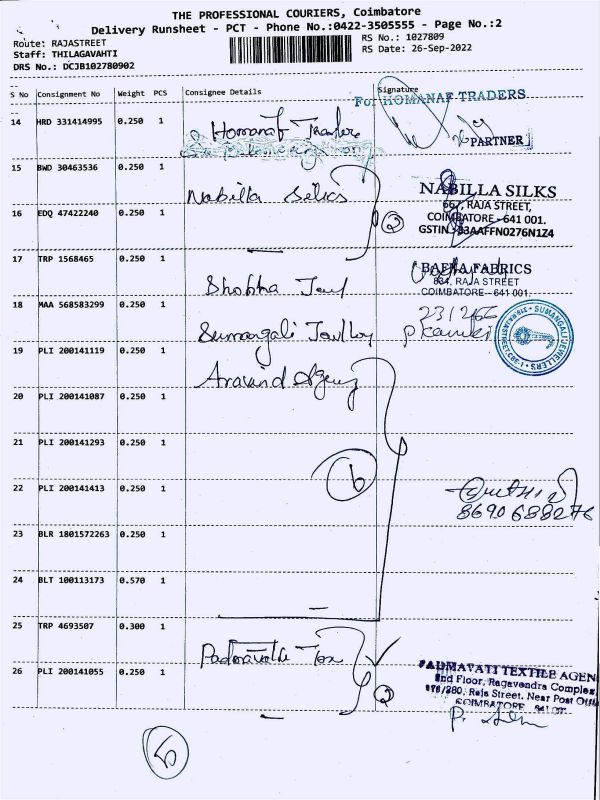 THE PROFESSIONAL COURIERS, Coimbatore
Delivery Runsheet - PCT - Phone No.:0422-3505555 - Page No.:2
Route: RAJASTREET
RS No.: 1027809
Staff: THILAGAVAHTI
RS Date: 26-Sep-2022
DRS No.: DCJB102780902
S No Consignment No Weight PCS Consignee Details Signature
14 HRD 331414995 0.250 1 Homanaf Traders For HOMANAF TRADERS
PARTNER
15 BWD 30463536 0.250 1 Nabilla Selics NABILLA SILKS
667, RAJA STREET,
16 EDQ 47422240 0.250 1 2 COIMBATORE - 641 001.
GSTIN : 33AAFFN0276N1Z4
17 TRP 1568465 0.250 1 Shobha BAFNA FABRICS
884, RAJA STREET
COIMBATORE - 641 001.
18 MAA 568583299 0.250 1 Sumangali SUMANGALI JEWELLERS
19 PLI 200141119 0.250 1 Aravind Agency
20 PLI 200141087 0.250 1
21 PLI 200141293 0.250 1
22 PLI 200141413 0.250 1 6
8690688276
23 BLR 1801572263 0.250 1
24 BLT 100113173 0.570 1
25 TRP 4693507 0.300 1 Padmavathi Tex
26 PLI 200141055 0.250 1 2 PADMAVATI TEXTILE AGEN
2nd Floor, Ragavendra Complex
Raja Street, Near Post
COIMBATORE
5